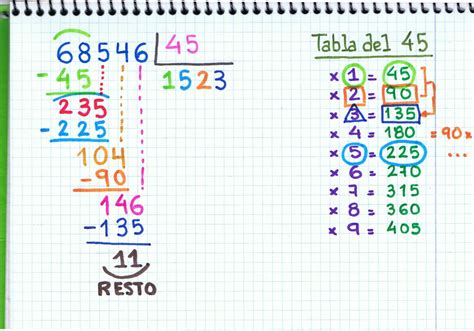 68546 45
- 45 1523
235
- 225
104
- 90
146
- 135
11
RESTO
Tabla del 45
x 1 = 45
x 2 = 90
x 3 = 135
x 4 = 180 = 90x
x 5 = 225 ...
x 6 = 270
x 7 = 315
x 8 = 360
x 9 = 405